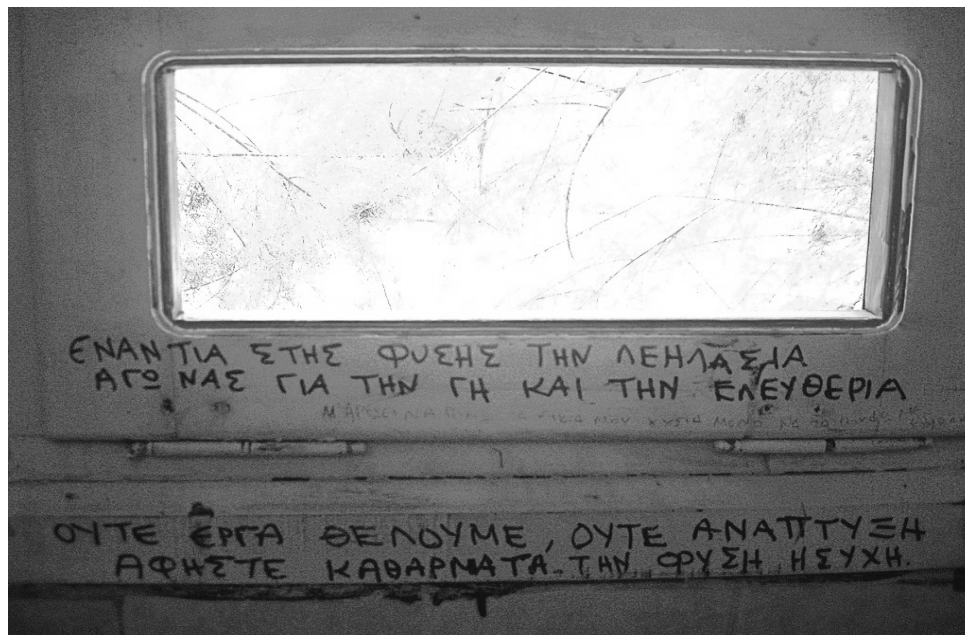 ΕΝΑΝΤΙΑ ΣΤΗΣ ΦΥΣΗΣ ΤΗΝ ΛΕΗΛΑΣΙΑ
ΑΓΩΝΑΣ ΓΙΑ ΤΗΝ ΓΗ ΚΑΙ ΤΗΝ ΕΛΕΥΘΕΡΙΑ
Μ'ΑΡΕΣΕΙ ΝΑ
ΟΥΤΕ ΕΡΓΑ ΘΕΛΟΥΜΕ, ΟΥΤΕ ΑΝΑΠΤΥΞΗ
ΑΦΗΣΤΕ ΚΑΘΑΡΜΑΤΑ ΤΗΝ ΦΥΣΗ ΗΣΥΧΗ.